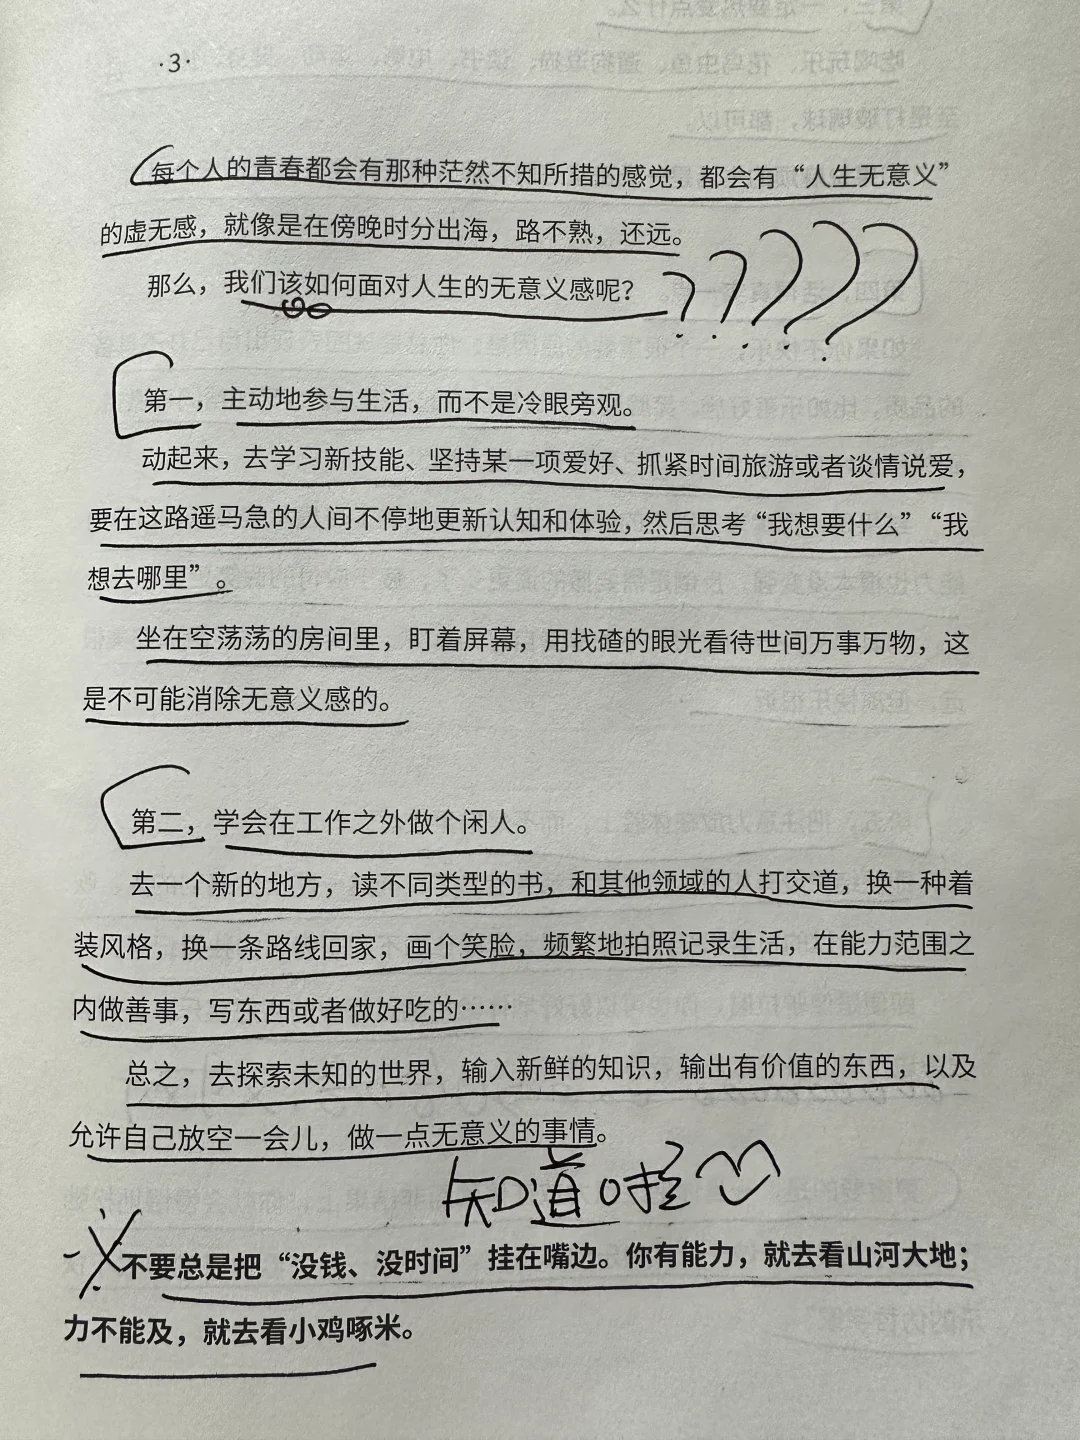 ·3·
每个人的青春都会有那种茫然不知所措的感觉，都会有“人生无意义”
的虚无感，就像是在傍晚时分出海，路不熟，还远。
那么，我们该如何面对人生的无意义感呢？
?????
第一，主动地参与生活，而不是冷眼旁观。
动起来，去学习新技能、坚持某一项爱好、抓紧时间旅游或者谈情说爱，
要在这路遥马急的人间不停地更新认知和体验，然后思考“我想要什么”“我
想去哪里”。
坐在空荡荡的房间里，盯着屏幕，用找碴的眼光看待世间万事万物，这
是不可能消除无意义感的。
第二，学会在工作之外做个闲人。
去一个新的地方，读不同类型的书，和其他领域的人打交道，换一种着
装风格，换一条路线回家，画个笑脸，频繁地拍照记录生活，在能力范围之
内做善事，写东西或者做好吃的……
总之，去探索未知的世界，输入新鲜的知识，输出有价值的东西，以及
允许自己放空一会儿，做一点无意义的事情。
知道啦
不要总是把“没钱、没时间”挂在嘴边。你有能力，就去看山河大地；
力不能及，就去看小鸡啄米。